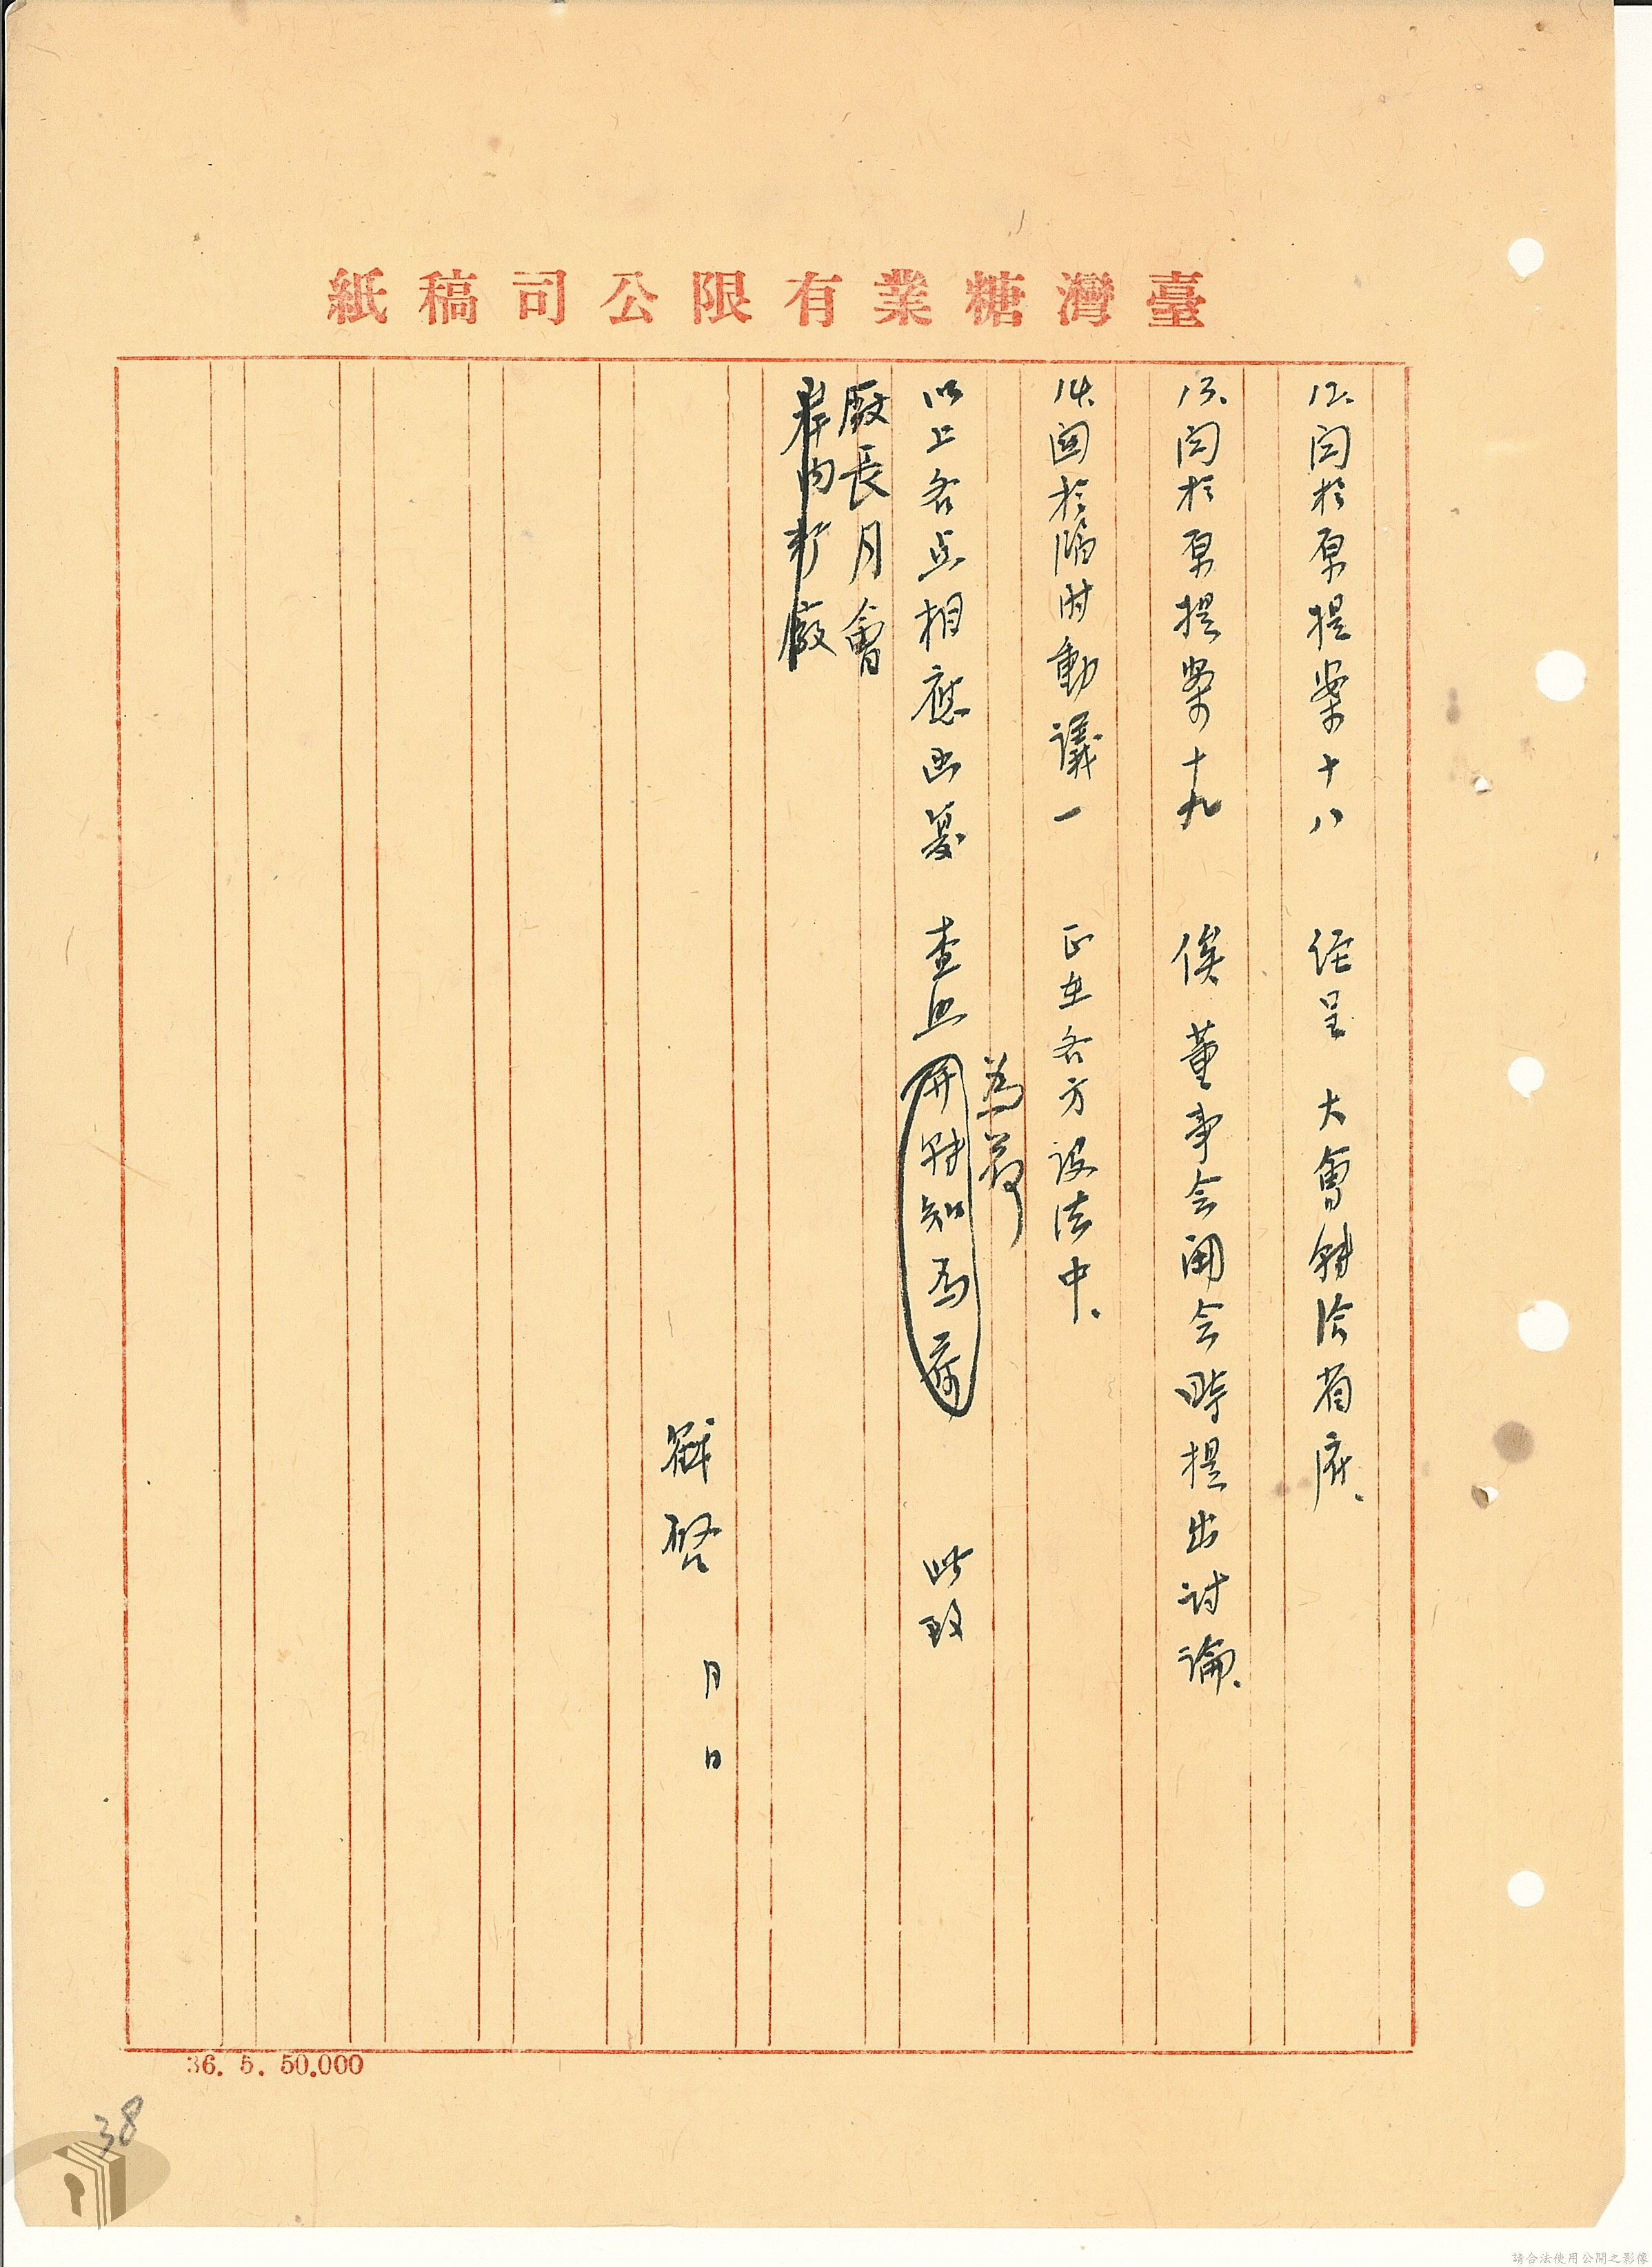 臺灣糖業有限公司稿紙
12.関於原提案十八 经呈 大會轉洽省府.
13.関於原提案十九 俟 董事会開会時提出討論.
14.関於臨時動議一 正在各方設法中.
為荷
以上各点相應函复 查照 并轉知為荷 此致
廠長月會
月 日
36. 5. 50.000
38
請合法使用公開之影像